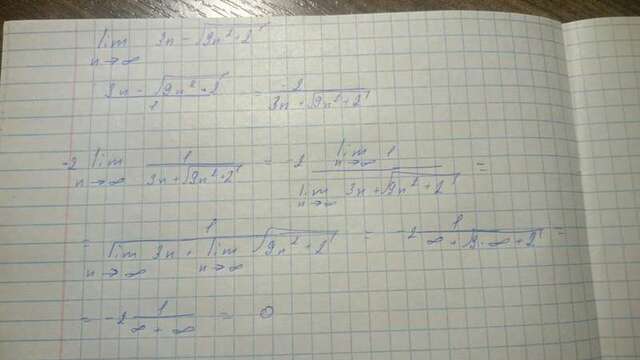 lim 3n - √(9n² + 2)
n→∞
(3n - √(9n² + 2))/1 = -2/(3n + √(9n² + 2))
-2 lim 1/(3n + √(9n² + 2)) = -2 (lim 1)/(lim 3n + √(9n² + 2)) =
n→∞ n→∞ n→∞
= 1/(lim 3n + lim √(9n² + 2)) = -2 1/(∞ + √(9·∞ + 2)) =
n→∞ n→∞
= -2 1/(∞ + ∞) = 0